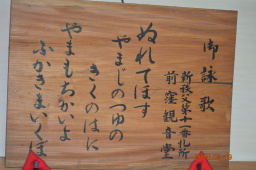 御詠歌
新秩父第十一番札所
前窪観音堂
ぬれてほす
やまじのつゆの
きくのはに
やまもちかいよ
ふかきまいくぼ